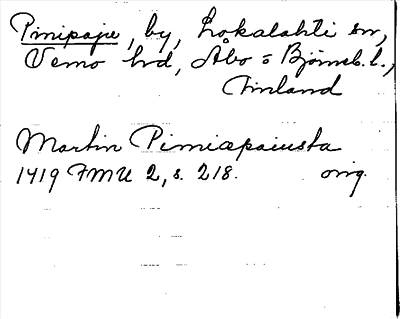 Pinipaju, by, Lokalahti sn,
Vemo hd, Åbo o Björneb. l.,
Finland
Martin Pimiæpaiusta
1419 FMU 2, s. 218. orig.